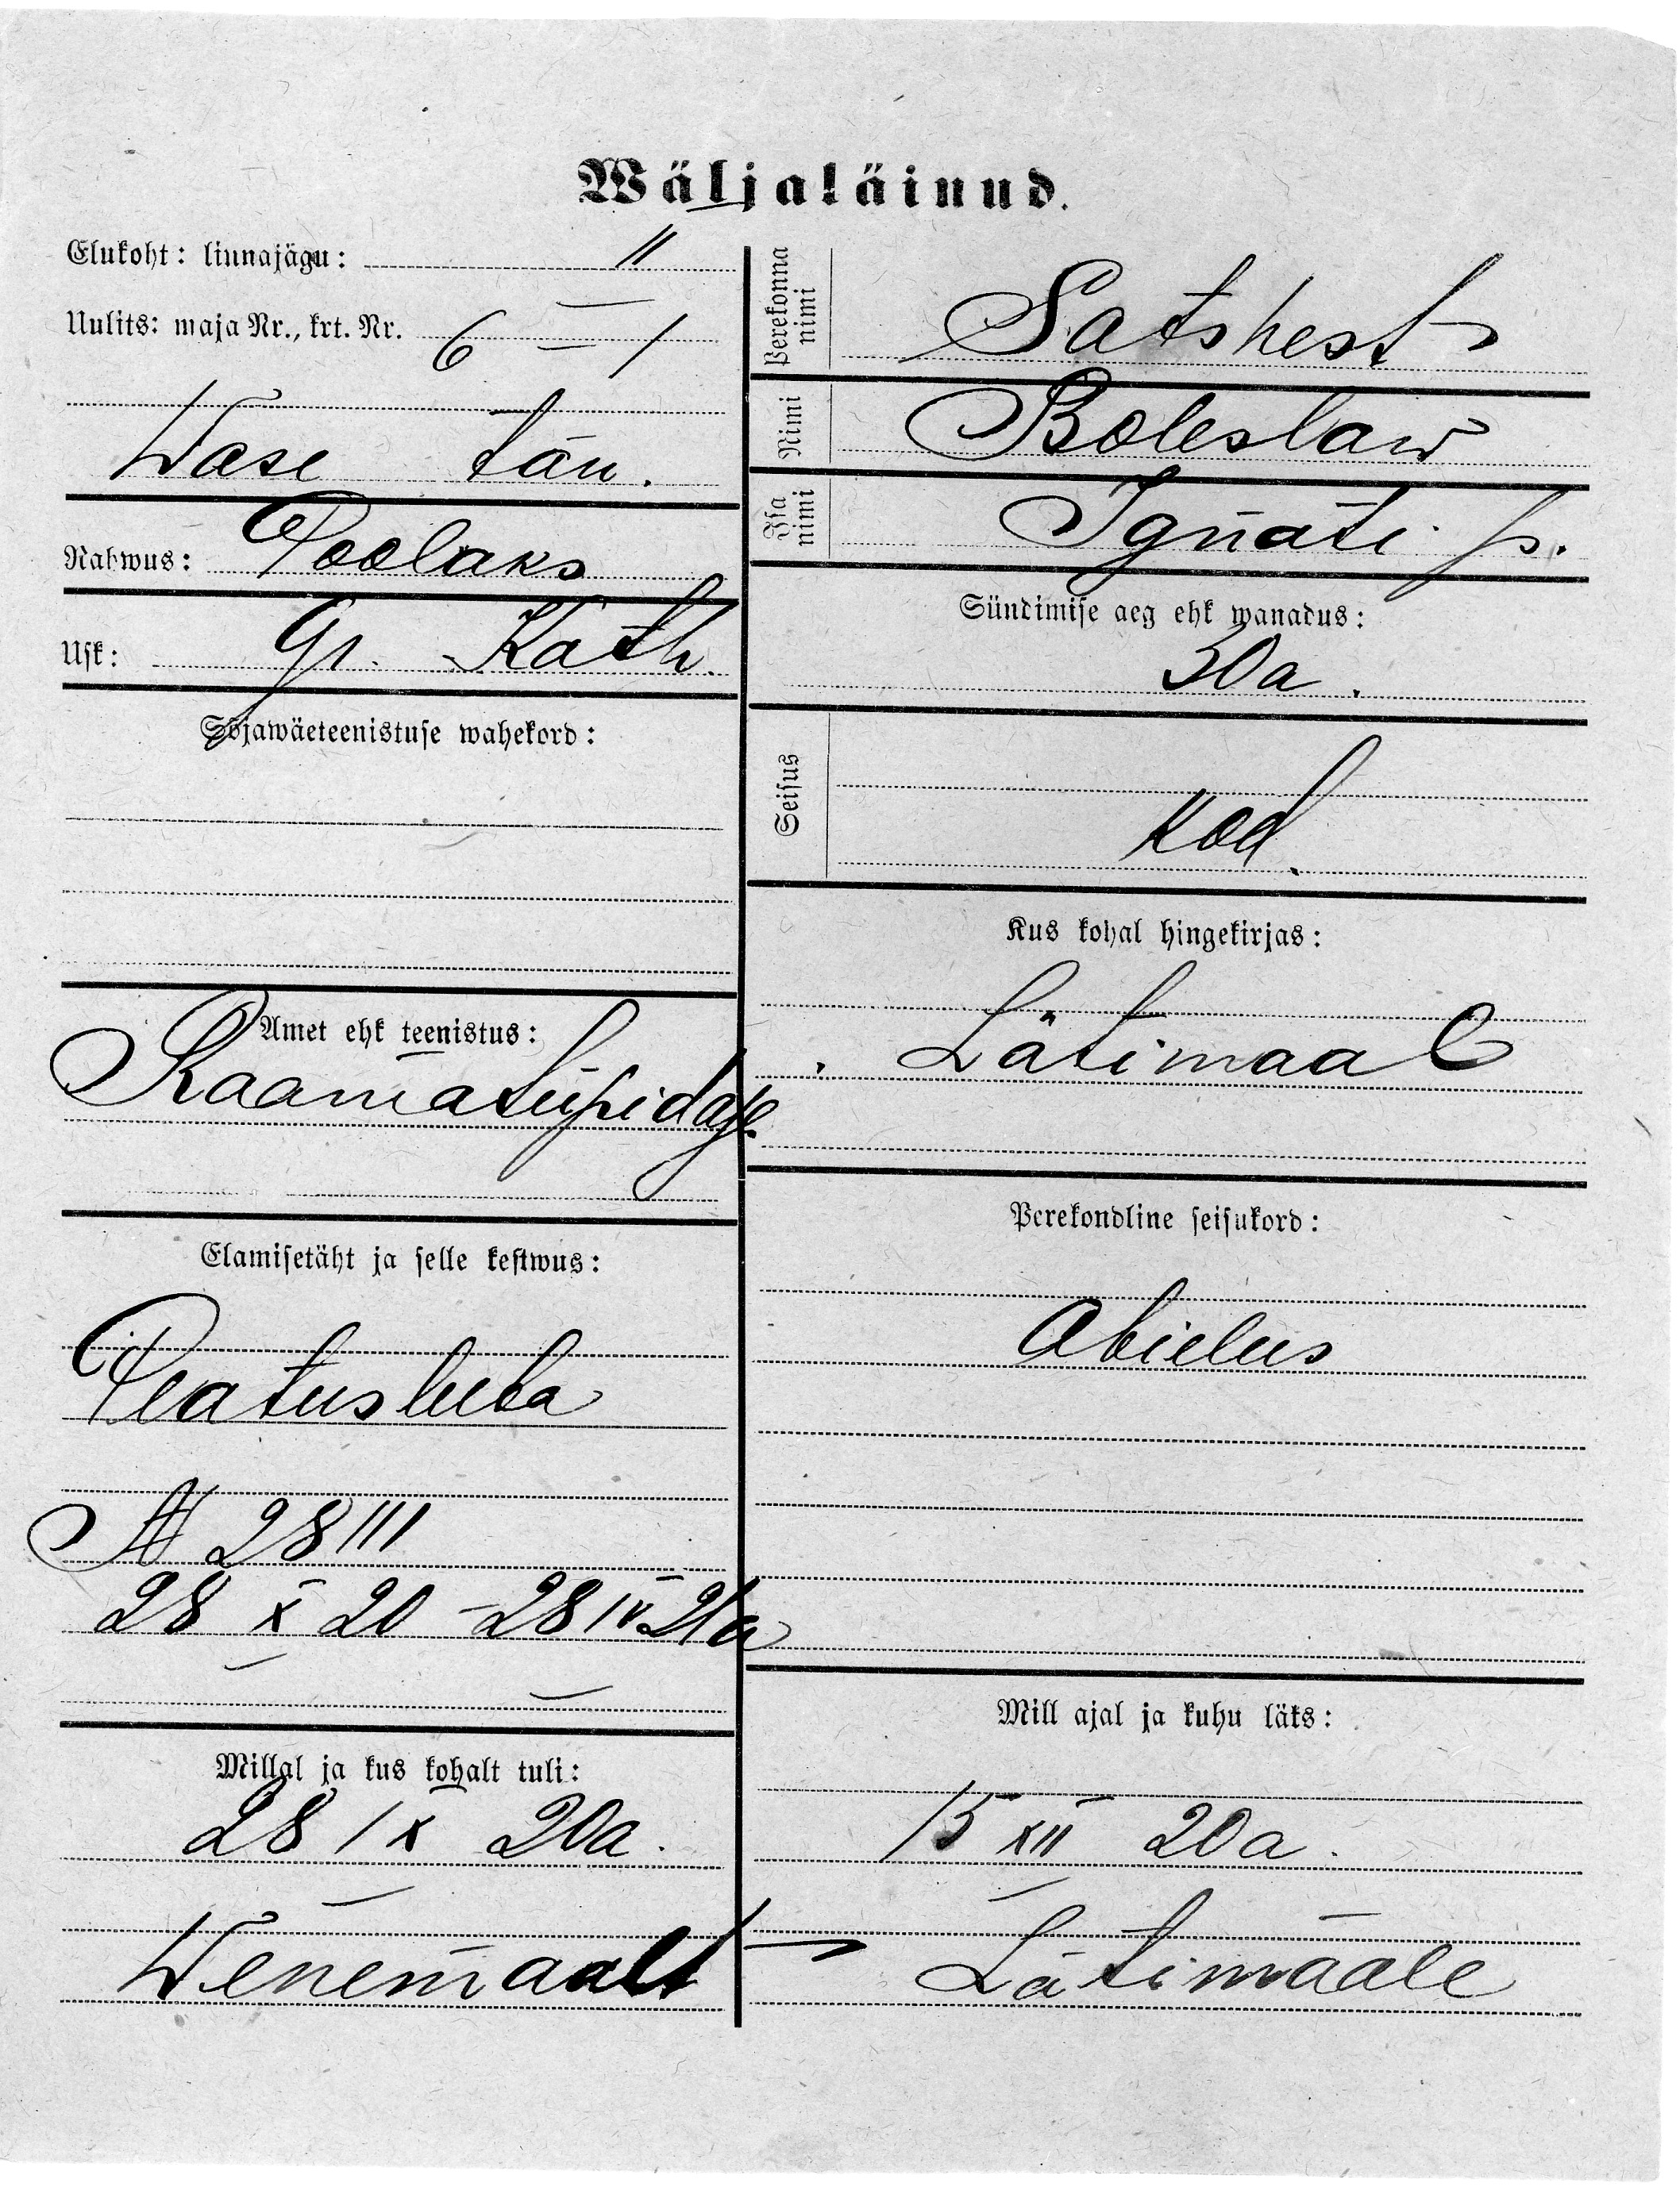 Wäljaläinud.
Elukoht: linnajägu: II
Uulits: maja Nr., krt. Nr. 6 — 1
Wase tän.
Rahwus: Poolaks
Usk: Gr. Kath.
Sõjawäeteenistuse wahekord:
Amet ehk teenistus:
Raamatupidaja
Elamisetäht ja selle kestwus:
Peatusluba
№ 28111
28 X 20 – 28 IV 21a
Millal ja kus kohalt tuli:
28 IX 20a.
Wenemaalt
Perekonna nimi
Satshest
Nimi
Boleslaw
Isa nimi
Ignati p.
Sündimise aeg ehk wanadus:
30a.
Seisus
Kod.
Kus kohal hingekirjas:
Lätimaal
Perekondline seisukord:
Abielus
Mill ajal ja kuhu läks:
15 XII 20a.
Lätimaale